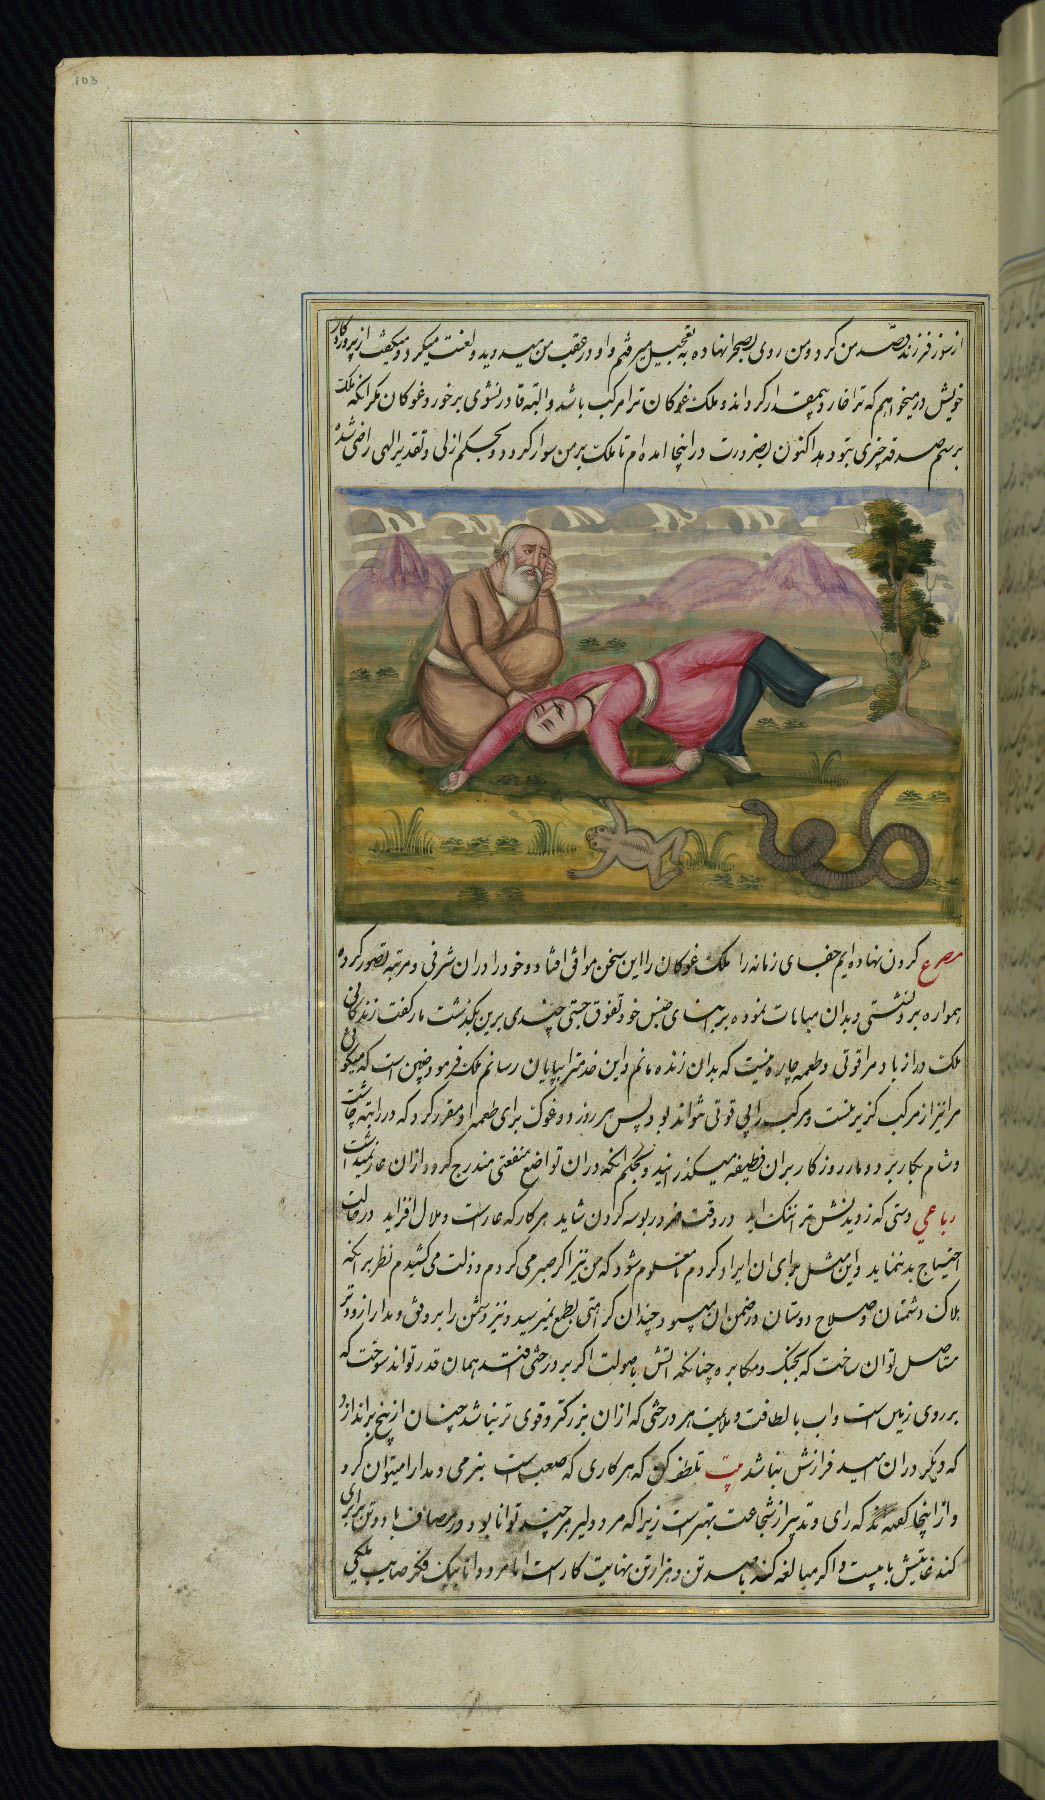 103
از سوز فرزند قصد من کرد و من روی بصحرا نهاده به تعجیل میرفتم و او در عقب من میدوید و لعنت میکرد و میگفت از پروردکار
خویش در میخواهم که ترا خار و بیمقدار کرداند و ملک غوکان ترا مرکب باشد و البته قادر نشوی بر خورد غوکان مکر انکه ملک
برسم صدقه چیزی بتو دهد اکنون بضرورت در اینجا امده ام تا ملک بر من سوار کردد و بحکم ازلی و تقدیر الهی راضی شده
مصرع کردن نهاده ایم جفای زمانه را ملک غوکان را این سخن موافق افتاد و خود را در ان شرفی و مرتبه تصور کرده
همواره بر و نشستی و بدان مباهات نموده بر ابنای جنس خود تفوق جستی چندی برین بکذشت مار کفت زندکانی
ملک دراز باد مرا قوتی و طعمه چاره نیست که بدان زنده مانم و این خدمت را بپایان رسانم ملک فرمود چنین است که میکوئی
مرا نیز از مرکب کزیر نیست و مرکب را بی قوتی نتواند بود پس هر روز دو غوک برای طعمه او مقرر کرد که در راتبه چاشت
و شام بکار برد و مار روزکار بران وظیفه میکذرانید و بحکم انکه در ان تواضع منفعتی مندرج کردد از ان عار نمیداشت
رباعی دستی که ز دیدنش ترا ننک اید در وقت ضرور بوسه کردن شاید هر کار که عارست و ملال افزاید در حالت
احتیاج بد ننماید و این مثل برای ان ایراد کردم تا معلوم شود که من نیز اکر صبر می کردم و ذلت می کشیدم نظر بر انکه
هلاک دشمنان و صلاح دوستان در ضمن ان میبود چندان کراهتی بطبع نمیرسید و نیز دشمن را برفق و مدارا زودتر
مستاصل توان ساخت که بجنک و مکابره چنانکه اتش با صولت اکر بر درختی افتد همان قدر تواند سوخت که
بر روی زمین است و اب با لطافت و ملایمت هر درختی که از ان بزرکتر و قوی تر نباشد چنان از بیخ براندازد
که دیکر در ان امید فرازش نباشد بیت تلطف کن که هر کاری که صعبست بنرمی و مدارا میتوان کرد
و از اینجا کفته اند که رای و تدبیر از شجاعت بهترست زیرا که مرد دلیر هر چند توانا بود در مصاف با دو تن برابری
کند غایتش با بیست و اکر مبالغه کنند با صد تن و هزار تن نهایت کارست اما مرد دانا بیک فکر صایب ملکی